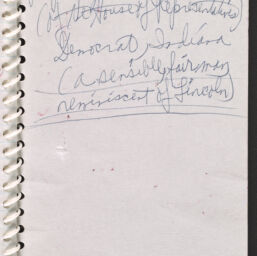 (of the House of Representatives)
Democrat, Indiana
(a sensible fair man
reminiscent of Lincoln)